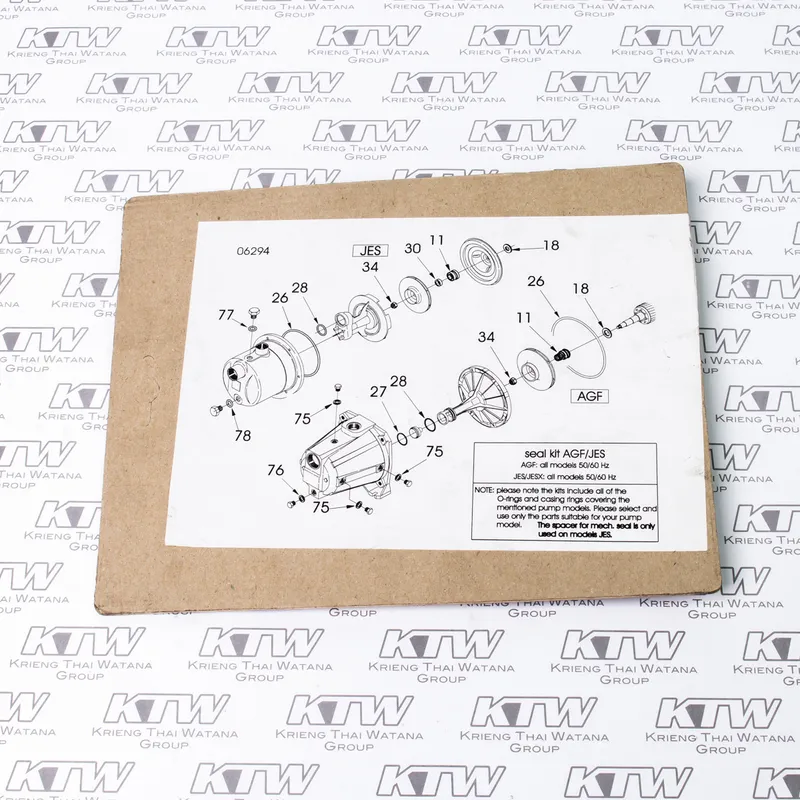 KTW
KRIENG THAI WATANA
GROUP
06294
JES
34
30
11
18
77
26
28
78
26
18
11
34
AGF
27
28
75
75
76
75
seal kit AGF/JES
AGF: all models 50/60 Hz
JES/JESX: all models 50/60 Hz
NOTE: please note the kits include all of the
O-rings and casing rings covering the
mentioned pump models. Please select and
use only the parts suitable for your pump
model. The spacer for mech. seal is only
used on models JES.